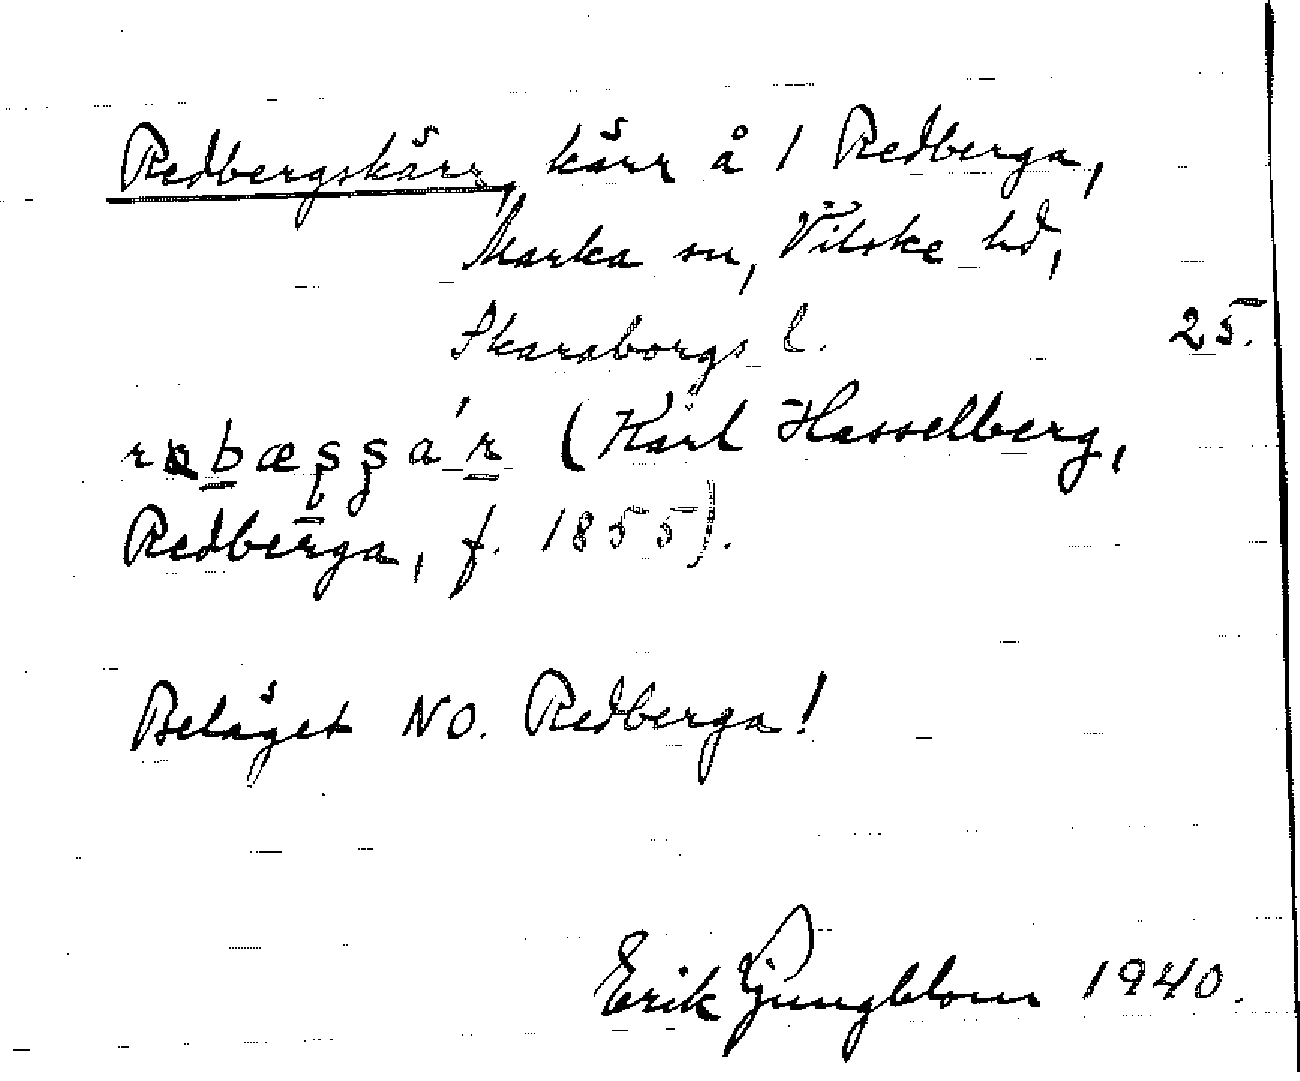 Redbergskärr, kärr å 1 Redberga,
Marka sn, Vilske hd,
Skaraborgs l. 25.
(Karl Hasselberg,
Redberga, f. 1855).
Beläget NO. Redberga!
Erik Ljungblom 1940.